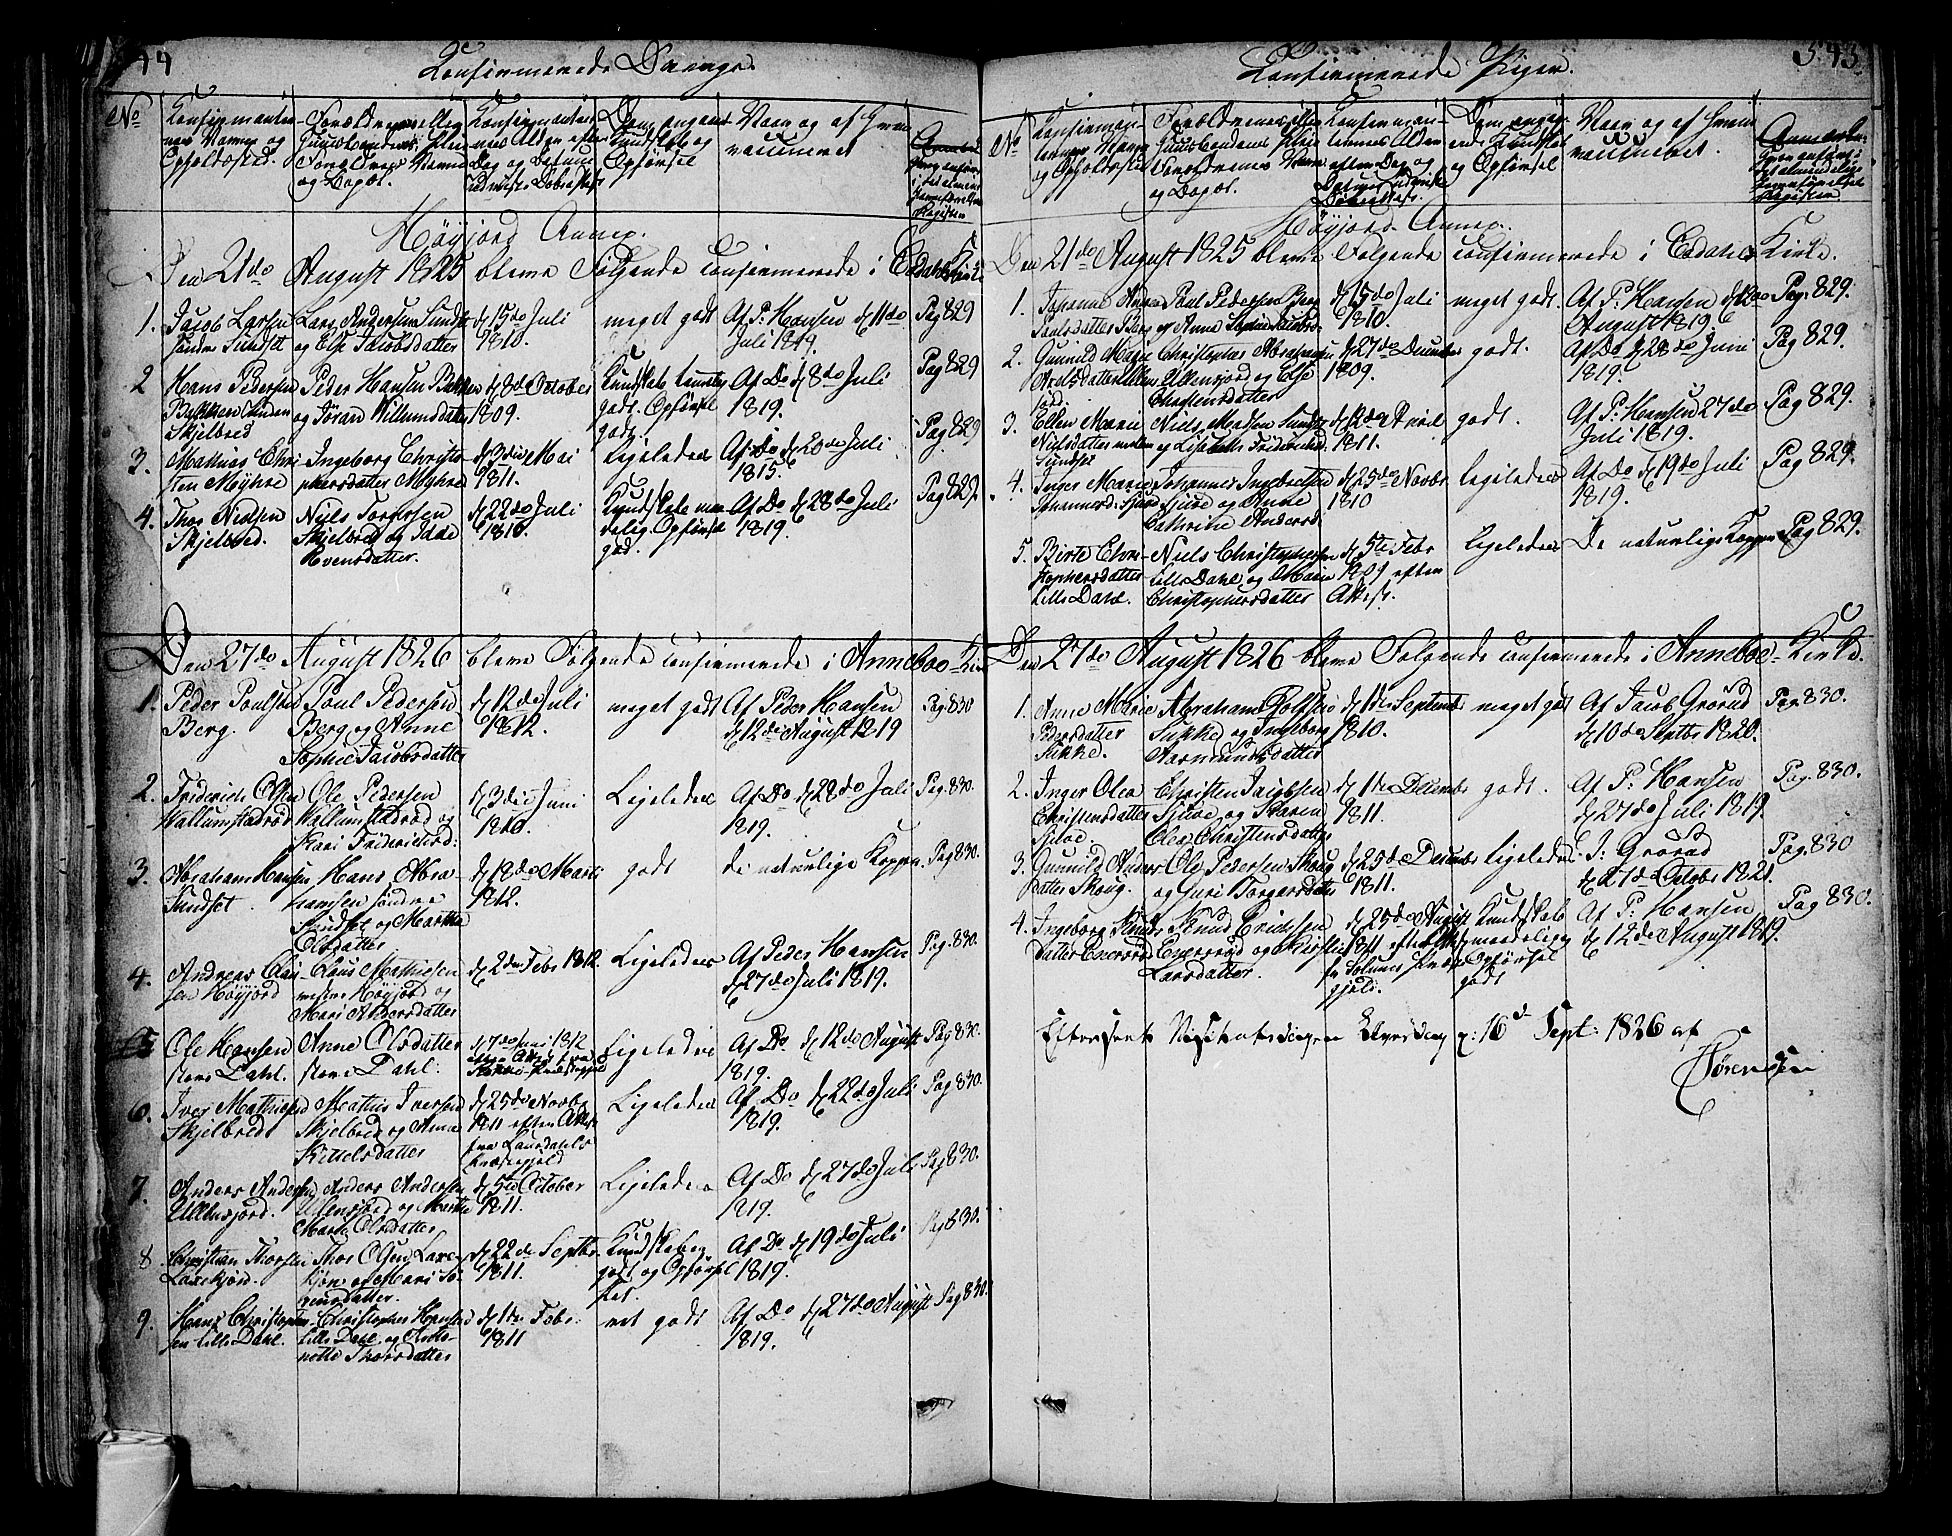 44
Confirmerede Drenge.
No
Confirmanter-
nes Navne og
Opholdssted.
Forældrenes eller
Huusbondens, Pleie
Forældres Navne
og Bopæl.
Confirmanter-
nes Alder efter
Dag og Datum
udviiste Døbeattest
Dom angaaende
Kundskab og
Opførsel
Naar og af hvem
vaccineret
Høyjord Annex.
Den 21do August 1825 bleve Følgende confirmerede i Kirke
1. Jacob Larsen
Søndre Sundset
Lars Andersen Sundset
og Else Jacobsdatter
d 15do Juli
1810.
meget godt
Af P: Hansen d 11do
Juli 1819.
Pag 829
2 Hans Pedersen
Bakken
Skjelbred
Peder Hansen Bakken
og Jøran Willumsdatter
d 8do October
1809.
Kundskab
godt. Opførsel
god.
Af Do d 8do Juli
1819.
Pag 829
3. Mathias Chri
sten Myhre
Ingeborg Christo-
phersdatter Myhre
d 3die Mai
1811.
Ligeledes
Af Do d 20de Juli
1815.
Pag 829
4. Thor Nielsen
Skjelbred.
Niels Torgersen
Skjelbred og
Evensdatter.
d 22do Juli
1810.
Kundskab maa-
delig. Opførsel
god.
Af Do d 28do Juli
1819.
Pag 829.
Den 27do August 1826 bleve Følgende confirmerede i Anneboe-Kirke
1. Peder Poulsen
Berg.
Poul Pedersen
Berg og Anne
Sophie Jacobsdatter
d 12do Juli
1812.
meget godt
Af Peder Hansen
d 12do August 1819
Pag 830
2. Friderich Olsen
Wallumstadrød
Ole Pedersen
Wallumstadrød og
Kari Friderichsd:
d 3die Juni
1810.
Ligeledes
Af Do d 28do Juli
1819.
Pag 830.
3. Abraham Hansen
Sundset
Hans Abra-
hamsen søndre
Sundset og Marthe
Olsdatter
d 18do Marti
1812.
godt
de naturlige Kopper.
Pag 830.
4. Andreas Clau
sen Høyjord
Claus Mathiesen
Høyjord og
Mari Andersdatter
d 2den Febr 1812.
Ligeledes
Af Peder Hansen
d 27do Juli 1819.
Pag. 830.
5 Ole Hansen
store Dahl.
Anne Olsdatter
store Dahl:
d 7do Juni 1812
efter Attest fra
Ligeledes
Af Do. d 12do August
1819.
Pag 830.
6. Iver Mathiesen
Skjelbred
Mathis Iversen
Skjelbred og Anne
Kittelsdatter
d 25do Novbr
1811 efter Attest
fra Laurdahls
Præstegjeld
Ligeledes
Af Do d 22do Juli
1819.
Pag 830.
7. Anders Andersen
Ullensjord.
Anders Andersen
Ullensjord og Marthe
Marie Olsdatter
d 5te October
1811.
Ligeledes
Af Do d 27do Juli
1819.
Pag 830.
8 Christian Thorsen
Laxekjørn.
Thor Olsen Laxe-
kjørn og Mari
d 22do Septbr
1811.
Kundskaber
godt og Opførsel
Af Do d 19do Juli
1819.
Pag 830.
9. Hans Christopher-
sen Lille Dahl.
Christopher Hansen
Lille Dahl og
Thorsdatter
d 1ste Febr.
1811
godt
Af Do d 27do August
1819.
Pag 830.
543.
Confirmerede Piger.
No
Confirman-
ternes Navne
og Opholdssted
Forældrenes eller
Huusbondens, Pleie
Forældrenes Navne
og Bopæl.
Confirman-
ternes Alder
efter Dag og
Datum udviiste
Døbeattest.
Dom angaa-
ende Kundskab
og Opførsel
Naar og af hvem
vaccineret.
Høyjord Annex.
Den 21do August 1825 bleve Følgende confirmerede i Kirke.
1. Johanne
Poulsdatter Berg
Poul Pedersen Berg
og Anne Sophie Jacobsd:
d 15do Juli
1810.
meget godt.
Af P: Hansen d 12do
August 1819
Pag. 829.
2. Gunild Marie
Ullens
jord.
Christopher Abraham
Ullensjord og Else
Christensdatter
d 27do December
1809.
godt.
Af Do d 28do Juni
1819.
Pag 829.
3. Ellen Marie
Nielsdatter mellem
Sundset
Niels Madsen Sundset
og Lisabeth
d 12do April
1811.
godt.
Af P: Hansen 27do
Juli 1819.
Pag 829.
4. Inger Marie
Johannesd:
Johannes Ingebretsen
og Anne
Cathrine Andersd.
d 25do Novbr
1810
ligeledes
Af Do d 19do Juli
1819.
Pag 829.
5. Birte Chri-
stophersdatter
Lille Dahl.
Niels Christophersen
Lille Dahl og Marie
Christophersdatter
d 5te Febr
1809 efter
Attest.
ligeledes
De naturlige Kopper
Pag 829.
Den 27do August 1826 bleve Følgende confirmerede i Anneboe-Kirke.
1. Anne Marie
Pedersdatter
Sukke.
Abraham Rolfsen
Sukke og Ingeborg
Aasmundsdatter
d 11te September
1810.
meget godt
Af Jacob Grorud
d 10do Septbr 1820.
Pag. 830.
2. Inger Olea
Christensdatter
Christen Jacobsen
og Karen
Olea Christensdatter
d 1te Decembr
1811.
godt.
Af P: Hansen
d 27do Juli 1819
Pag 830.
3. Gunnild Anders
datter Skoug.
Ole Pedersen Skoug
og Guri Torgersdatter
d 25do Decembr
1811.
Ligeledes
J: Grorud
d 27do Octobr 1821.
Pag. 830
4. Ingeborg Knuds
datter
Knud Erichsen
og
Larsdatter.
d 25do August
1811 efter Attest
gjeld.
Kundskab
maadelig
Opførsel
godt
Af P: Hansen
d 12do August 1819.
Pag 830.
Efterseet Visitatsdagen Løverdag d: 16d Sept: 1826 af
Sørensen